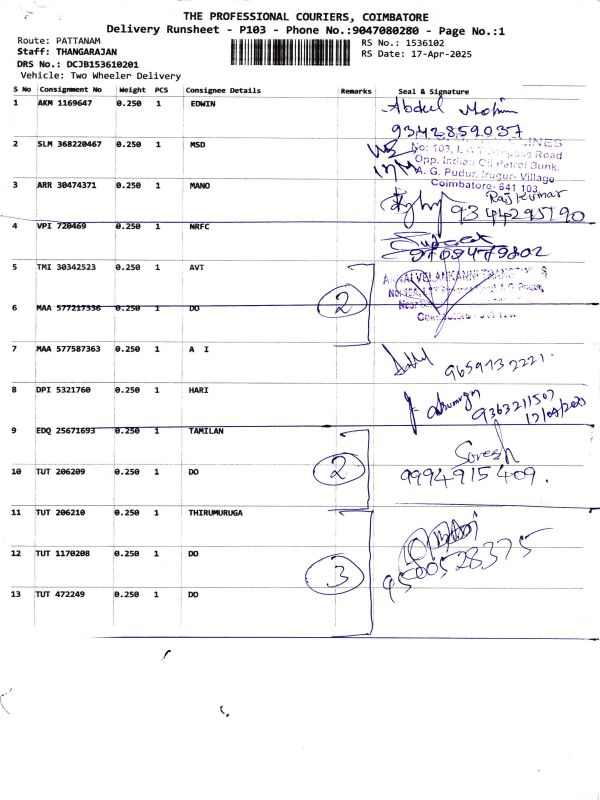 THE PROFESSIONAL COURIERS, COIMBATORE
Delivery Runsheet - P103 - Phone No.:9047080280 - Page No.:1
Route: PATTANAM
RS No.: 1536102
Staff: THANGARAJAN
RS Date: 17-Apr-2025
DRS No.: DCJB153610201
Vehicle: Two Wheeler Delivery
S No Consignment No Weight PCS Consignee Details Remarks Seal & Signature
1 AKM 1169647 0.250 1 EDWIN Abdul
2 SLM 368220467 0.250 1 MSD
No: 103, Road
Opp. Indian Oil Petrol Bunk,
A. G. Pudur, Irugur- Village
Coimbatore- 641 103
3 ARR 30474371 0.250 1 MANO Rajkumar
4 VPI 720469 0.250 1 NRFC
5 TMI 30342523 0.250 1 AVT
2
6 MAA 577217336 0.250 1 DO
7 MAA 577587363 0.250 1 A I
9659132221
8 DPI 5321760 0.250 1 HARI
9363211507
9 EDQ 25671693 0.250 1 TAMILAN
Suresh
2
10 TUT 206209 0.250 1 DO 9994915409.
11 TUT 206210 0.250 1 THIRUMURUGA
9500528375
12 TUT 1170208 0.250 1 DO
3
13 TUT 472249 0.250 1 DO